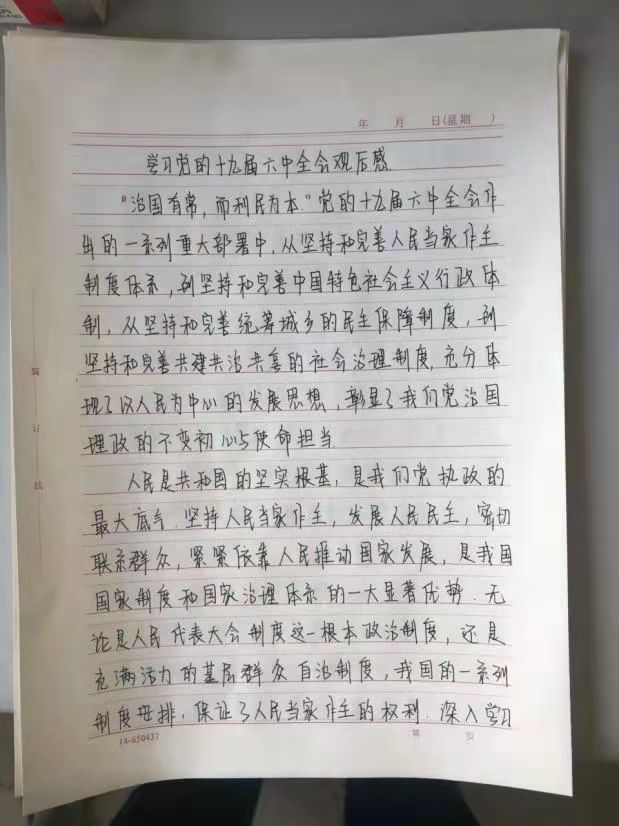 年 月 日(星期 )
学习党的十九届六中全会观后感
“治国有常，而利民为本.”党的十九届六中全会作
出的一系列重大部署中，从坚持和完善人民当家作主
制度体系，到坚持和完善中国特色社会主义行政体
制，从坚持和完善统筹城乡的民生保障制度，到
坚持和完善共建共治共享的社会治理制度，充分体
现了以人民为中心的发展思想，彰显了我们党治国
理政的不变初心与使命担当
人民是共和国的坚实根基，是我们党执政的
最大底气.坚持人民当家作主，发展人民民主，密切
联系群众，紧紧依靠人民推动国家发展，是我国
国家制度和国家治理体系的一大显著优势.无
论是人民代表大会制度这一根本政治制度，还是
充满活力的基层群众自治制度，我国的一系列
制度安排，保证了人民当家作主的权利.深入学习
装
订
线
14-650437
第 页